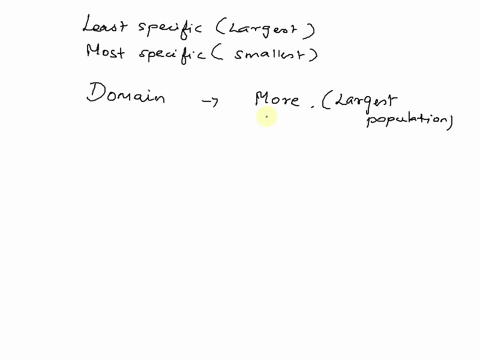 Least specific (Largest)
Most specific ( smallest)
Domain → More . (Largest
population)